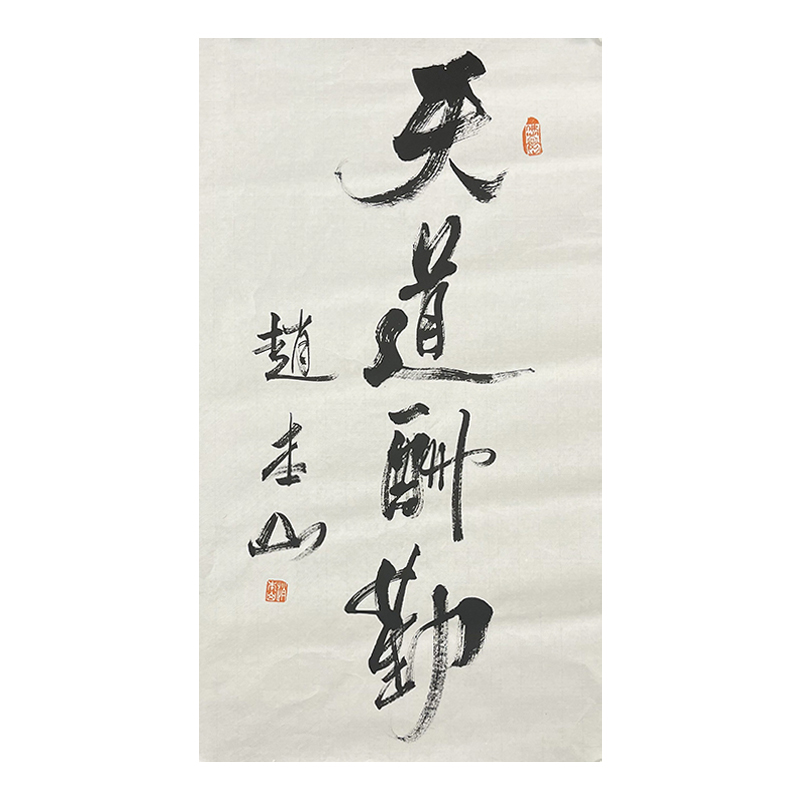 天道酬勤
趙本山